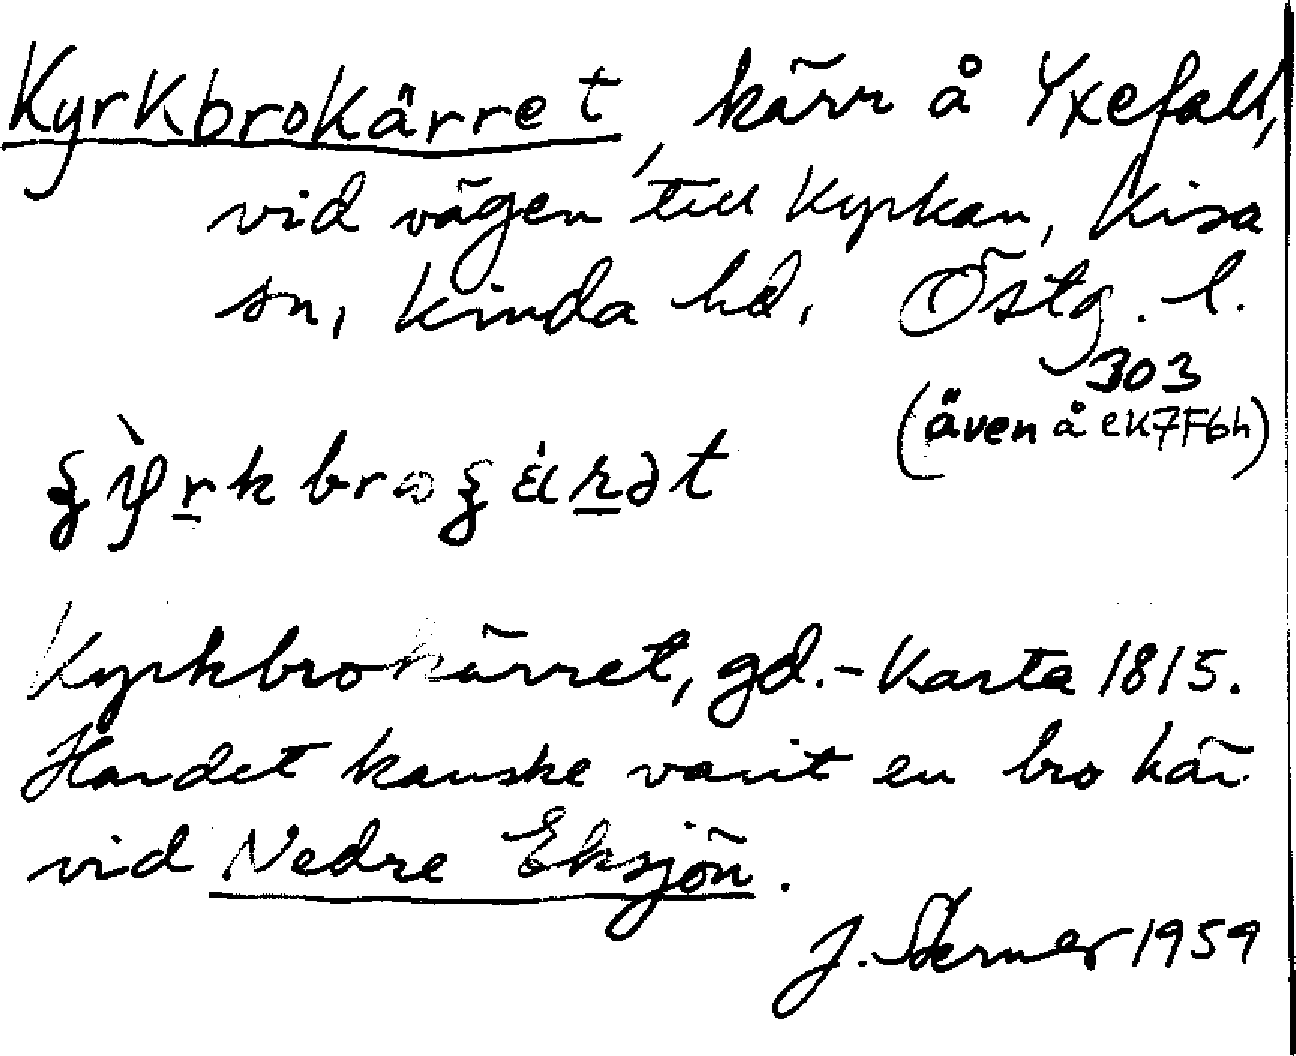 Kyrkbrokärret, kärr å Yxefall,
vid vägen till kyrkan, Kisa
sn, Kinda hd, Östg. l.
303
(även å ek7F6h)
Kyrkbrokärret, gd.-Karta 1815.
Har det kanske varit en bro här
vid Nedre Eksjön.
J. 1959